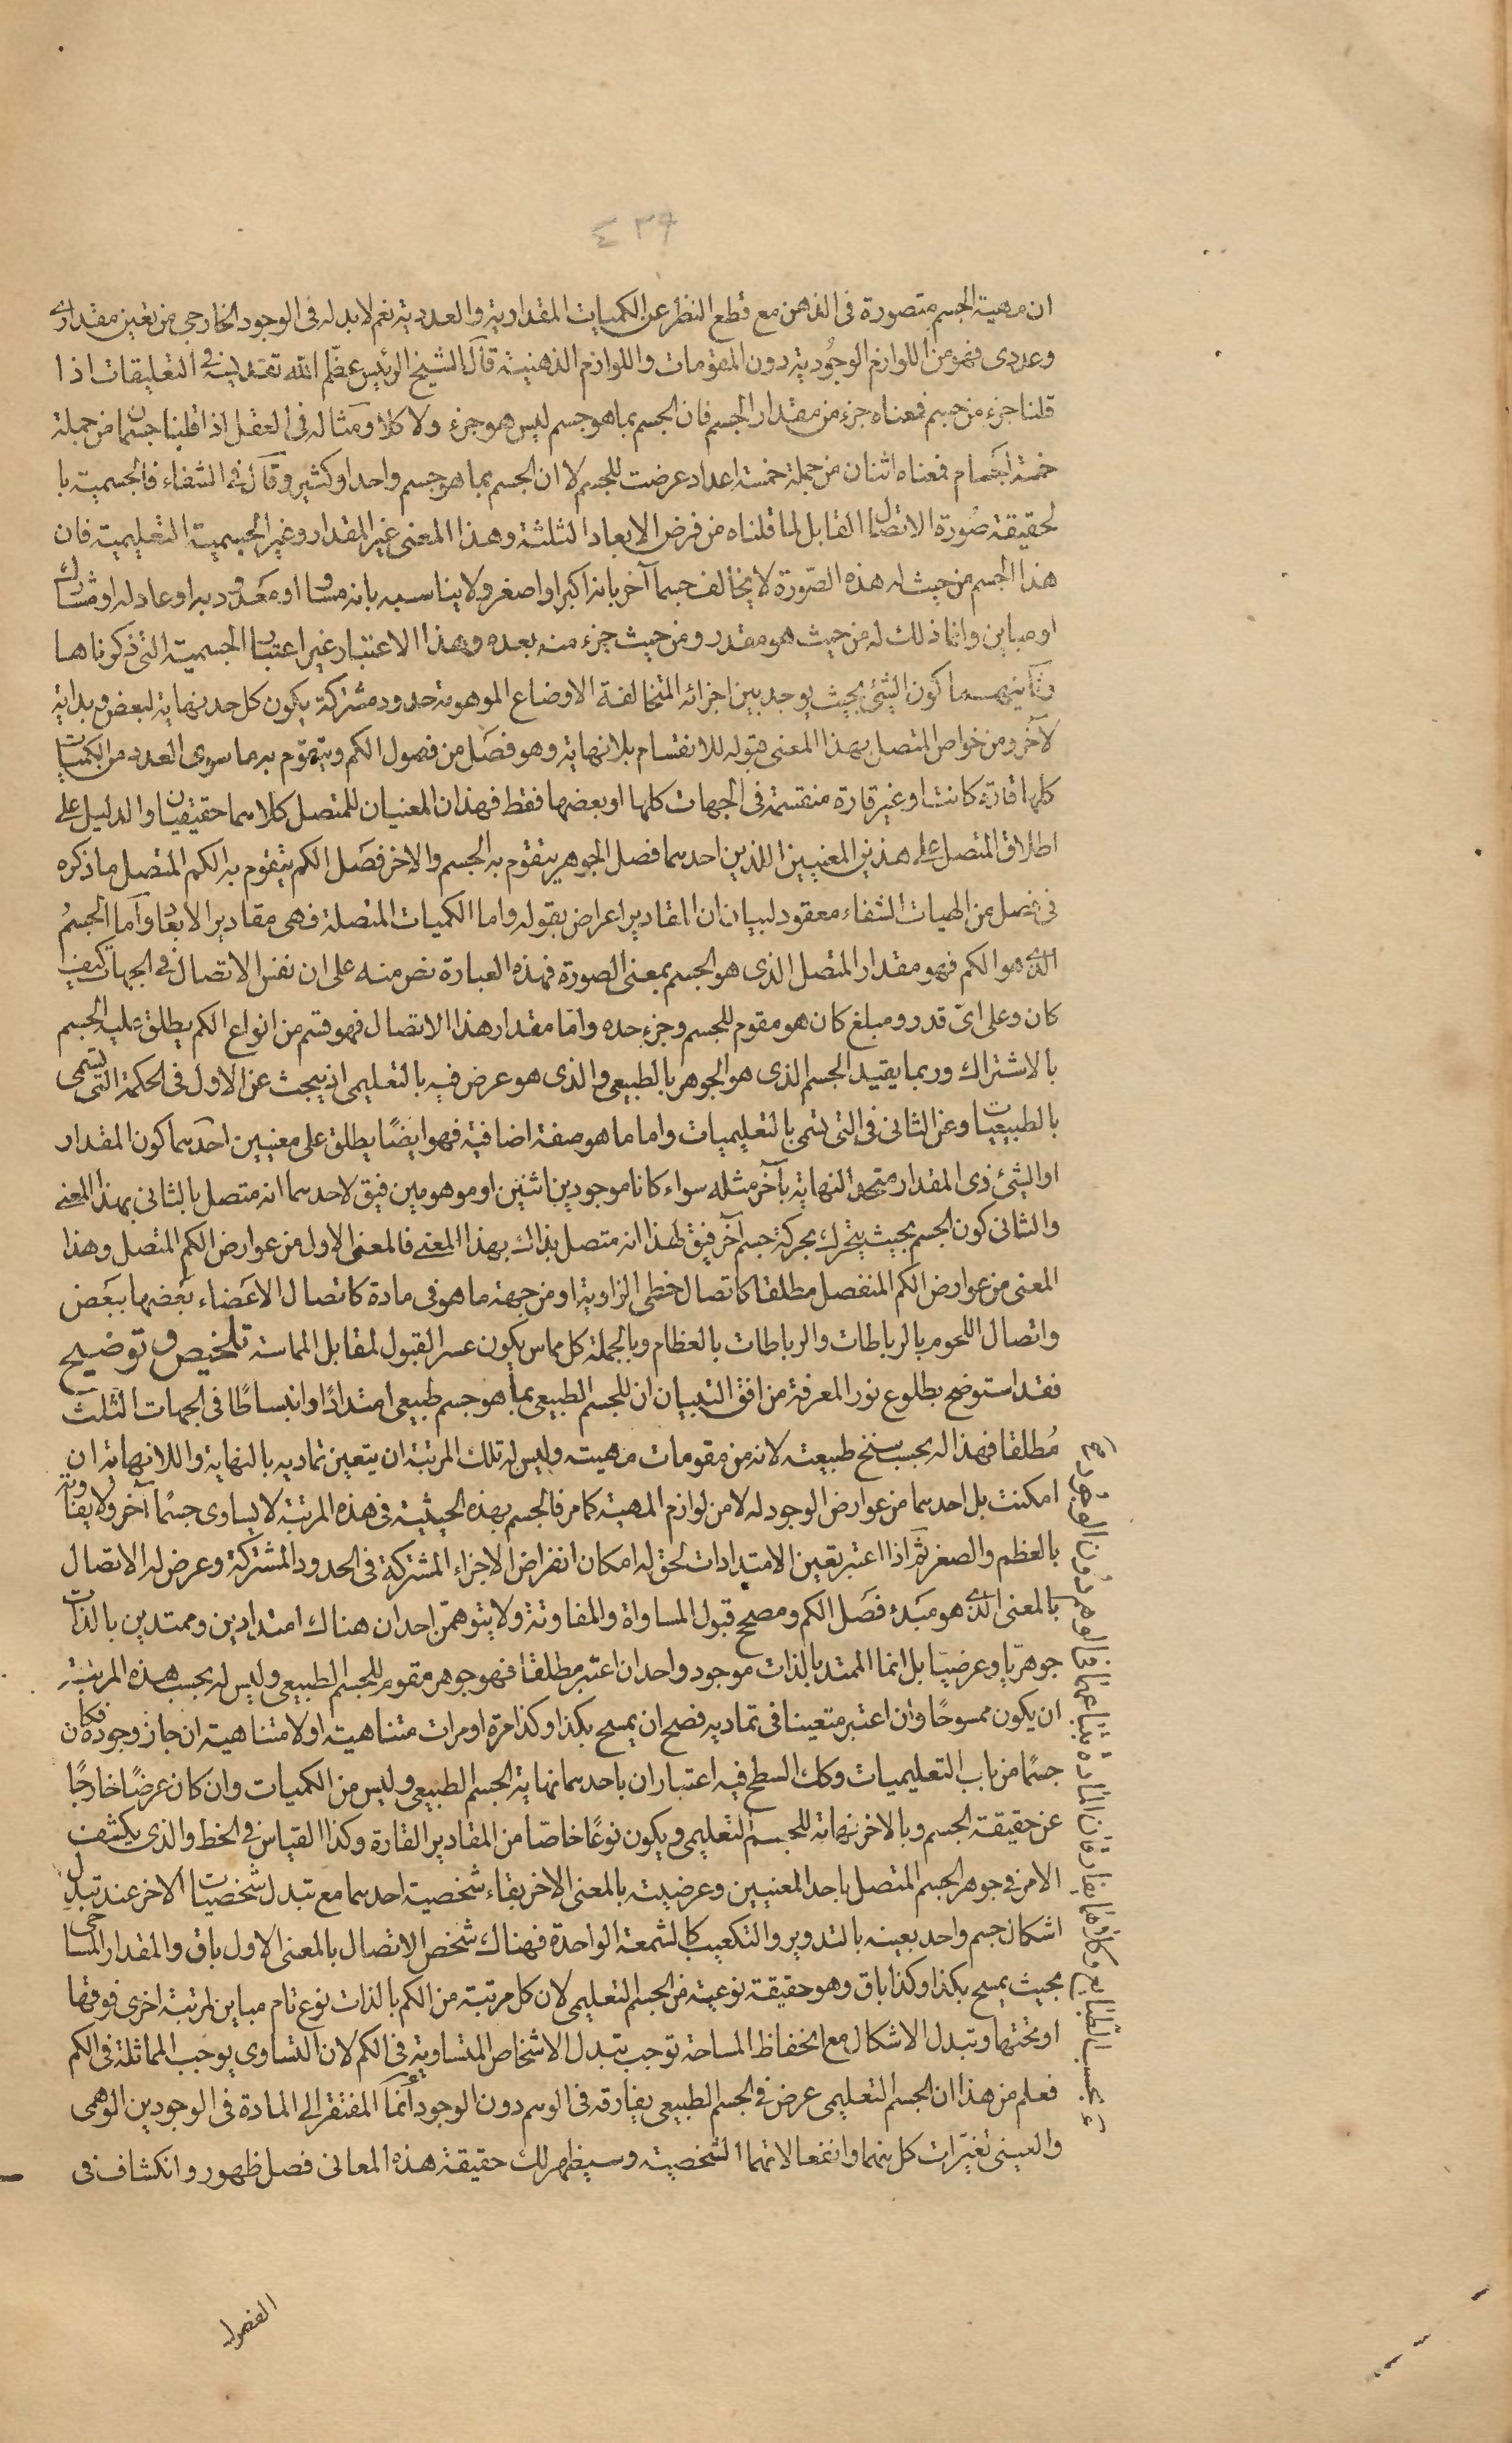 ٤٣٩
ان مهية الجسم متصورة فى الذهن مع قطع النظر عن الكميات المقدارية والعددية نعم لا بد له فى الوجود الخارجى من تعين مقدارى
وعددى فهو من اللوازم الوجودية دون المقومات واللوازم الذهنية قال الشيخ الرئيس عظّم الله تقديسه فى التعليقات اذا
قلنا جزء من جسم فمعناه جزء من مقدار الجسم فان الجسم بما هو جسم ليس هو جزء ولا كلا ومثاله فى العقل اذا قلنا جسمان من جملة
خمسة اجسام فمعناه اثنان من جملة خمسة اعداد عرضت للجسم لا ان الجسم بما هو جسم واحد او كثير وقال فى الشفاء فالجسمية با
لحقيقة صورة الاتصال القابل لما قلناه من فرض الابعاد الثلثة وهذا المعنى غير المقدار وغير الجسمية التعليمية فان
هذا الجسم من حيث له هذه الصّورة لا يخالف جسما آخر بانه اكبر او اصغر ولا يناسبه بانه مساو او معدود به او عادله او مشارك
او مباين وانما ذلك له من حيث هو مقدر ومن حيث جزء منه يعده وهذا الاعتبار غير اعتبار الجسمية التى ذكرناها
وثانيهما كون الشئ بحيث يوجد بين اجزائه المتخالفة الاوضاع الموهومة حدود مشتركة يكون كل حد نهاية لبعض وبداية
لآخر ومن خواص المتصل بهذا المعنى قبوله للانقسام بلا نهاية وهو فصل من فصول الكم ويتقوّم به ما سوى العدد من الكميات
كلها قارة كانت او غير قارة منقسمة فى الجهات كلها او بعضها فقط فهذان المعنيان للمتصل كلاهما حقيقيان والدليل على
اطلاق المتصل على هذين المعنيين اللذين احدهما فصل الجوهر يتقوم به الجسم والاخر فصل الكم يتقوم به الكم المتصل ما ذكره
فى فصل من الهيات الشفاء معقود لبيان ان المقادير اعراض بقوله واما الكميات المتصلة فهى مقادير الابعاد واما الجسمُ
الذى هو الكم فهو مقدار المتصل الذى هو الجسم بمعنى الصورة فهذه العبارة نص منه على ان نفس الاتصال فى الجهات كيف
كان وعلى اىّ قدر ومبلغ كان هو مقوم للجسم وجزء حده وامّا مقدار هذا الاتصال فهو قسم من انواع الكم يطلق عليه الجسم
بالاشتراك وربما يقيد الجسم الذى هو الجوهر بالطبيعى والذى هو عرض فيه بالتعليمى اذ يبحث عن الاول فى الحكمة التى تسمى
بالطبيعيات وعن الثانى فى التى تسمى بالتعليميات واما ما هو صفة اضافية فهو ايضًا يطلق على معنيين احدهما كون المقدار
او الشئ ذى المقدار متحد النهاية بآخر مثله سواء كانا موجودين اثنين او موهومين فيق لاحدهما انه متصل بالثانى بهذا المعنى
والثانى كون الجسم بحيث يتحرك بحركة جسم آخر فيق لهذا انه متصل بذاك بهذا المعنى فالمعنى الاول من عوارض الكم المتصل وهذا
المعنى من عوارض الكم المنفصل مطلقا كاتصال خطى الزاوية او من جهة ما هو فى مادة كاتصال الاعضاء بعضها ببعض
واتصال اللحوم بالرباطات والرباطات بالعظام وبالجملة كل مماس يكون عسر القبول لمقابل المماسة تلخيص وتوضيح
فقد استوضح بطلوع نور المعرفة من افق التبيان ان للجسم الطبيعى بما هو جسم طبيعى امتدادًا وانبساطًا فى الجهات الثلث
مُطلقا فهذا له بحسب سنخ طبيعته لانه من مقومات مهيته وليس له تلك المرتبة ان يتعين تماديه بالنهاية واللانهاية ان
امكنت بل احدهما من عوارض الوجود له لا من لوازم المهية كما مر فالجسم بهذه الحيثية فى هذه المرتبة لا يساوى جسمًا آخر ولا يفاوته
بالعظم والصغر ثم اذا اعتبر تعين الامتدادات لحق له امكان انفراض الاجزاء المشتركة فى الحدود المشتركة وعرض له الاتصال
بالمعنى الذى هو مبدء فصل الكم ومصحح قبول المساواة والمفاوتة ولا يتوهمّن احد ان هناك امتدادين وممتدين بالذات
جوهريّا وعرضيّا بل انما الممتد بالذات موجود واحد ان اعتبر مطلقا فهو جوهر مقوم للجسم الطبيعى وليس له بحسب هذه المرتبة
ان يكون ممسوحًا وان اعتبر متعينا فى تماديه فصح ان يمسح بكذا وكذا مرة او مرات متناهية او لا متناهية ان جاز وجوده فكان
جسمًا من باب التعليميات وكك السطح فيه اعتباران باحدهما نهاية الجسم الطبيعى وليس من الكميات وان كان عرضًا خارجًا
عن حقيقة الجسم وبالاخر نهاية للجسم التعليمى ويكون نوعًا خاصّا من المقادير القارة وكذا القياس فى الخط والذى يكشف
الامر فى جوهر الجسم المتصل باحد المعنيين وعرضيته بالمعنى الاخر بقاء شخصية احدهما مع تبدل شخصيات الاخر عند تبدل
اشكال جسم واحد بعينه بالتدوير والتكعيب كالشمعة الواحدة فهناك شخص الاتصال بالمعنى الاول باق والمقدار المساحى
بحيث يمسح بكذا وكذا باق وهو حقيقة نوعية من الجسم التعليمى لان كل مرتبة من الكم بالذات نوع تام مباين لمرتبة اخرى فوقها
او تحتها وتبدل الاشكال مع انحفاظ المساحة توجب تبدل الاشخاص المتساوية فى الكم لان التساوى يوجب المماثلة فى الكم
فعلم من هذا ان الجسم التعليمى عرض فى الجسم الطبيعى يفارقه فى الوهم دون الوجود وأنما المفتقر الى المادة فى الوجودين الوهمى
والعينى تغيّرات كل منهما وانفعالاتهما الشخصية وسيظهر لك حقيقة هذه المعانى فصل ظهور وانكشاف فى
الفصول